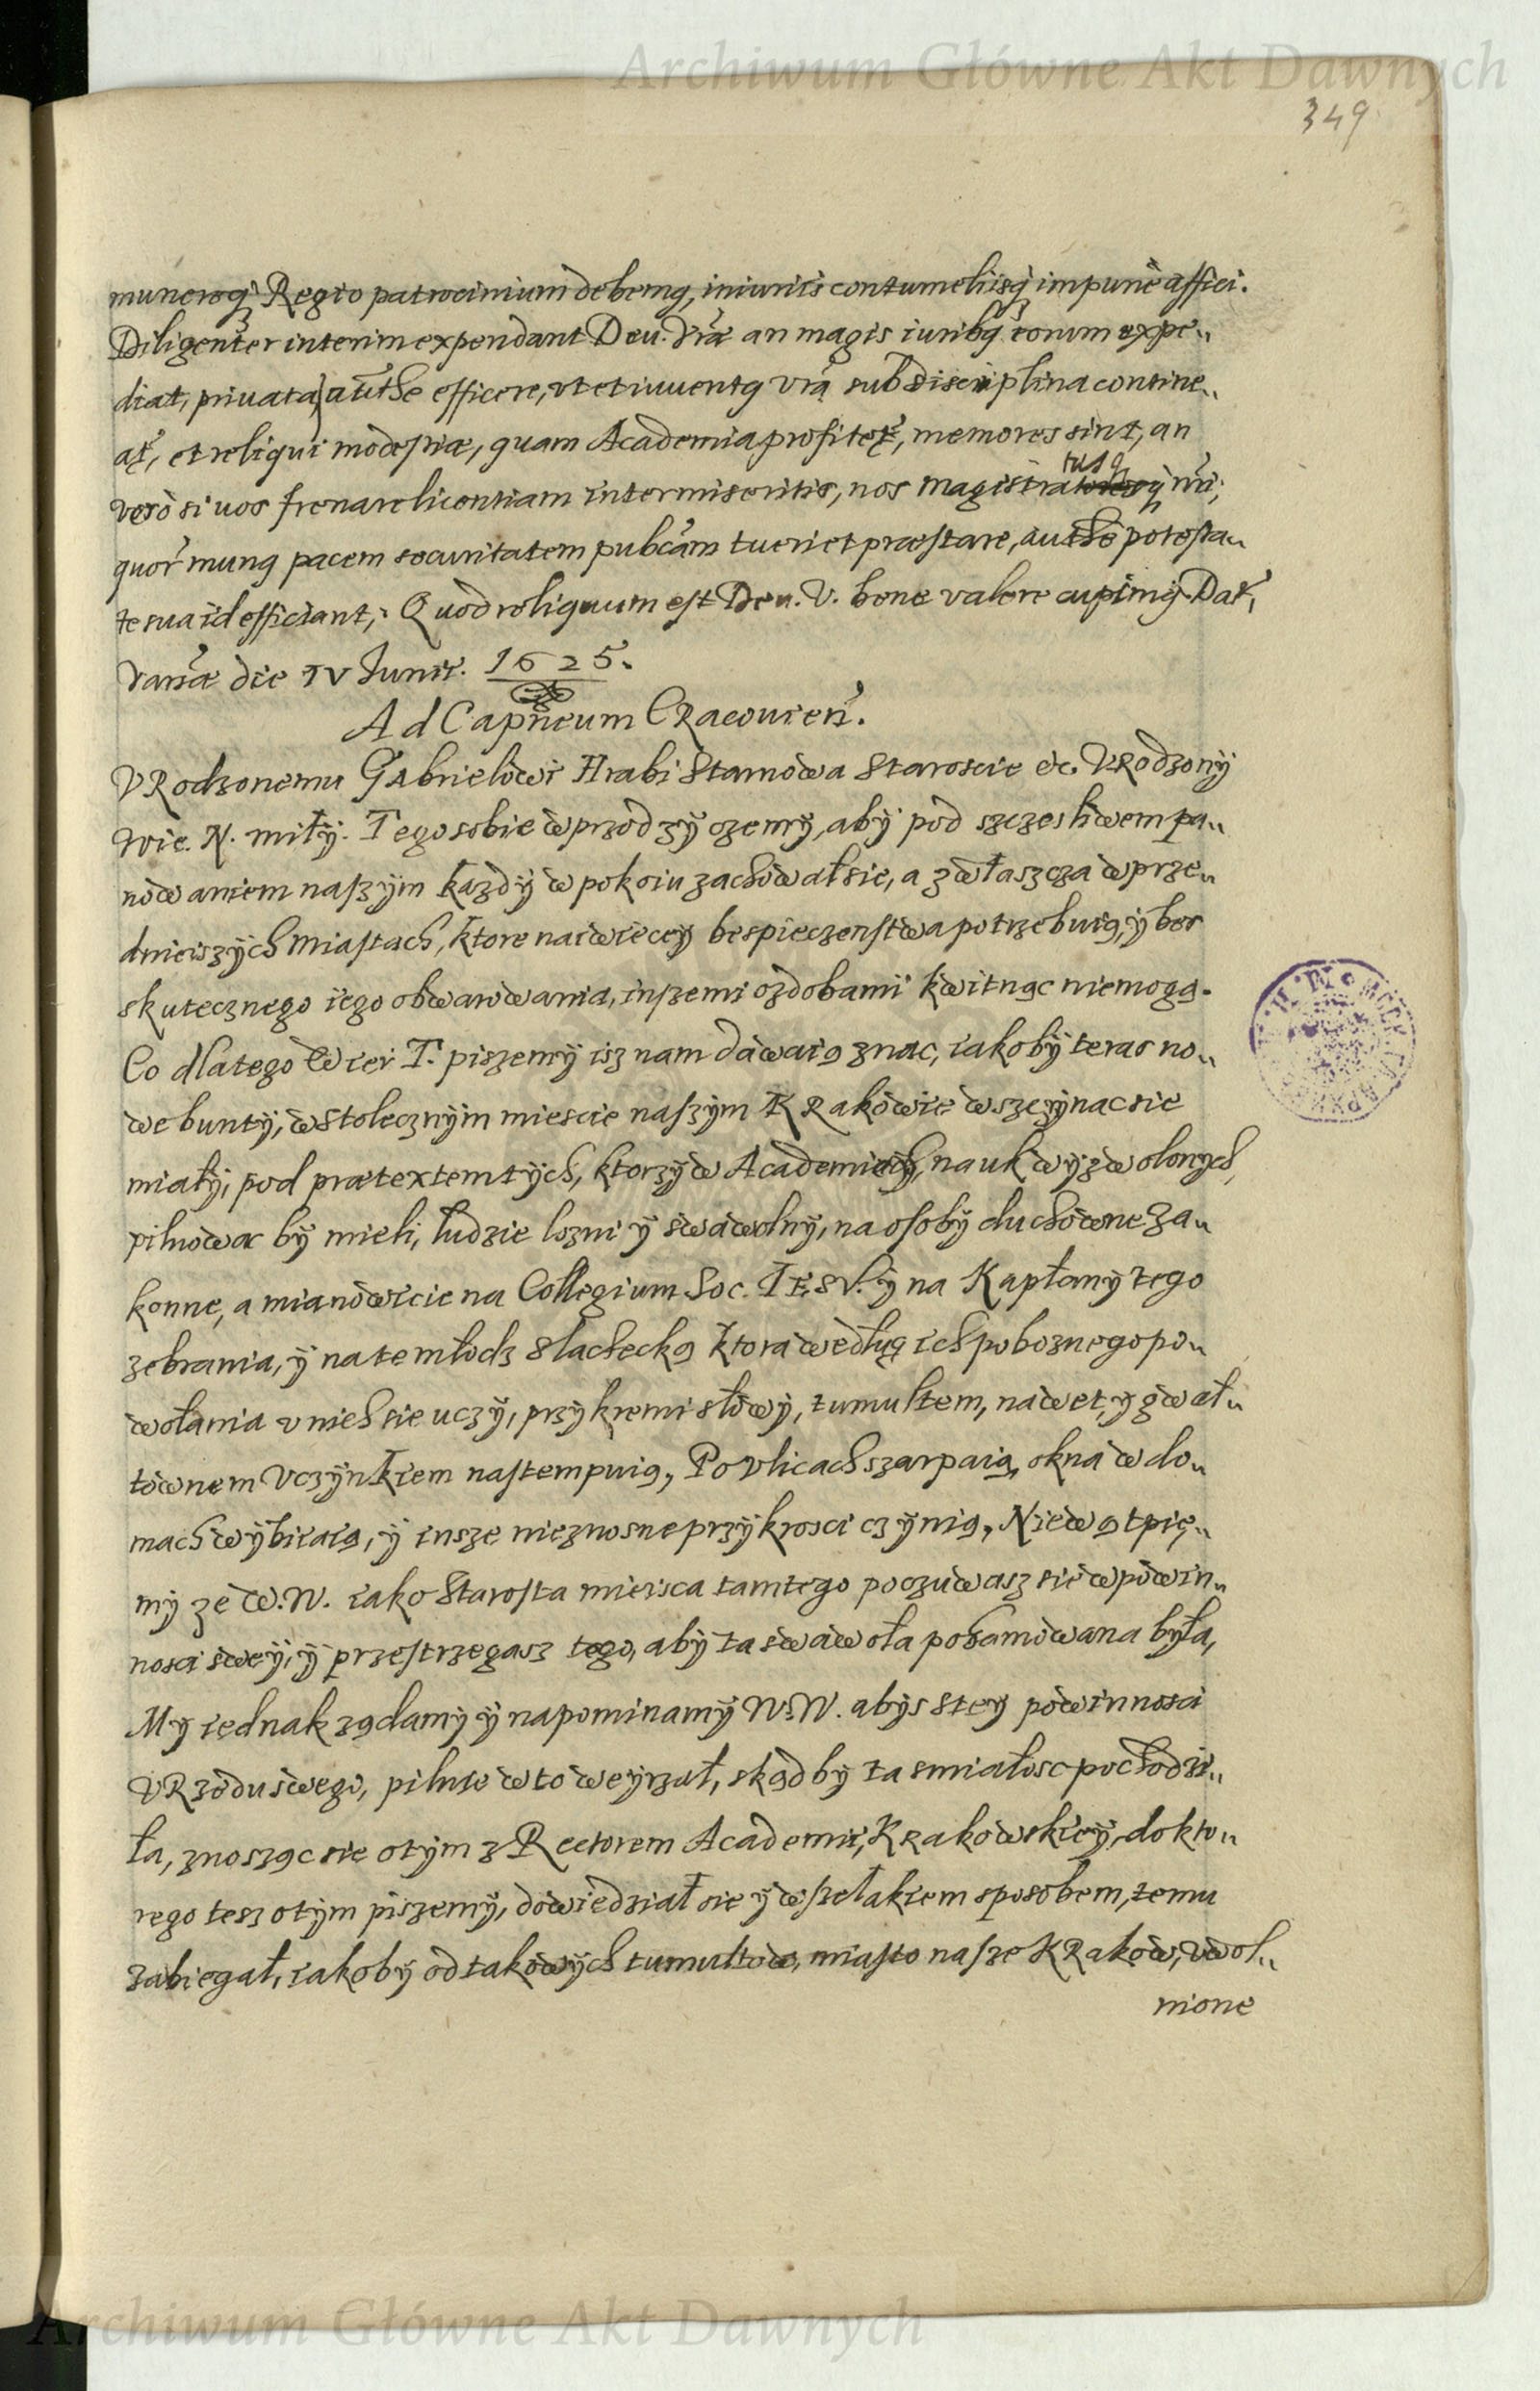 Archiwum Główne Akt Dawnych
349
muneroq̃ Regio patrocinium debemq, iniuriis contumeliisq̃ impunè affici.
Diligenter interim expendant Deu. Vrã an magis iuribq̃ eorum expe„
diat, priuata authẽ efficere, vt et iuuentq vrã sub disciplina contine„
at̃, et reliqui modestiæ, quam Academia profitet̃, memores sint, an
verò si uos frenare licentiam intermiseritis, nos magistratusq̃ nri;
quor̃ munq pacem securitatem pubcãm tueri et præstare, authẽ potesta„
te sua id efficiant; Quod reliquum est Deu. V. bene valere cupimq. Dat̃,
Varsæ die IV Junii. 1625.
Ad Capneum CRacouien̄.
VRodzonemu GAbrielowi Hrabi Starnowa Staroscie etc. VRodzony
wie. N. miły. Tego sobie wprzod zyczemy, aby pod szczesliwem pa„
nowaniem naszym kazdy w pokoiu zachowałsie, a zwłaszcza w prze„
dnieiszych Miastach, ktore naiwiecey bespieczenstwa potrzebuią, y bes
skutecznego iego obwarowania, inszemi ozdobami kwitnąc niemogą.
Co dlatego Wier T. piszemy isz nam dawaią znac, iakoby teras no„
we bunty, w stolecznym miescie naszym KRakowie wszczynac sie
miały, pod prætextem tych, ktorzy w Academiach, nauk wyzwolonych,
pilnowac by mieli, ludzie lozni y swawolny, na osoby duchowne Za„
konne, a mianowicie na Collegium Soc. IESV. y na Kapłany tego
zebrania, y na te młodz Slachecką ktora według ich poboznego po„
wołania v nich sie uczy, przykremi słowy, tumultem, nawet, y gwał„
townem Vczynkiem nastempuią, Po vlicach szarpaią, okna w do„
mach wybiiaią, y insze nieznosne przykrosci czynią, Niewątpię„
my ze W. W. iako Starosta mieisca tamtego poczuwasz sie w powin„
nosci swey, y przestrzegasz tego, aby ta swawola pohamowana była,
My iednak ządamy y napominamy W. W. abys stey powinnosci
VRzędu swego, pilnie w to weyrzał, skąd by ta smiałosc pochodzi„
ła, znosząc sie otym z Rectorem Academii, KRakowskiey, do kto„
rego tesz otym piszemy, dowiedział sie y wszelakiem sposobem, temu
zabiegał, iakoby od takowych tumultow, miasto nasze KRakow, vwol„
nione
Archiwum Główne Akt Dawnych